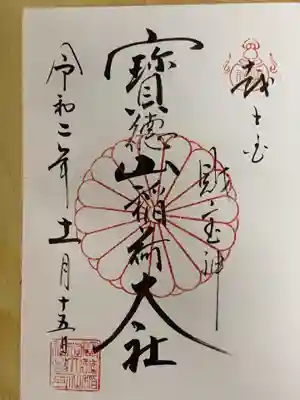 財宝神
寳徳山稲荷大社
令和二年十一月十五日